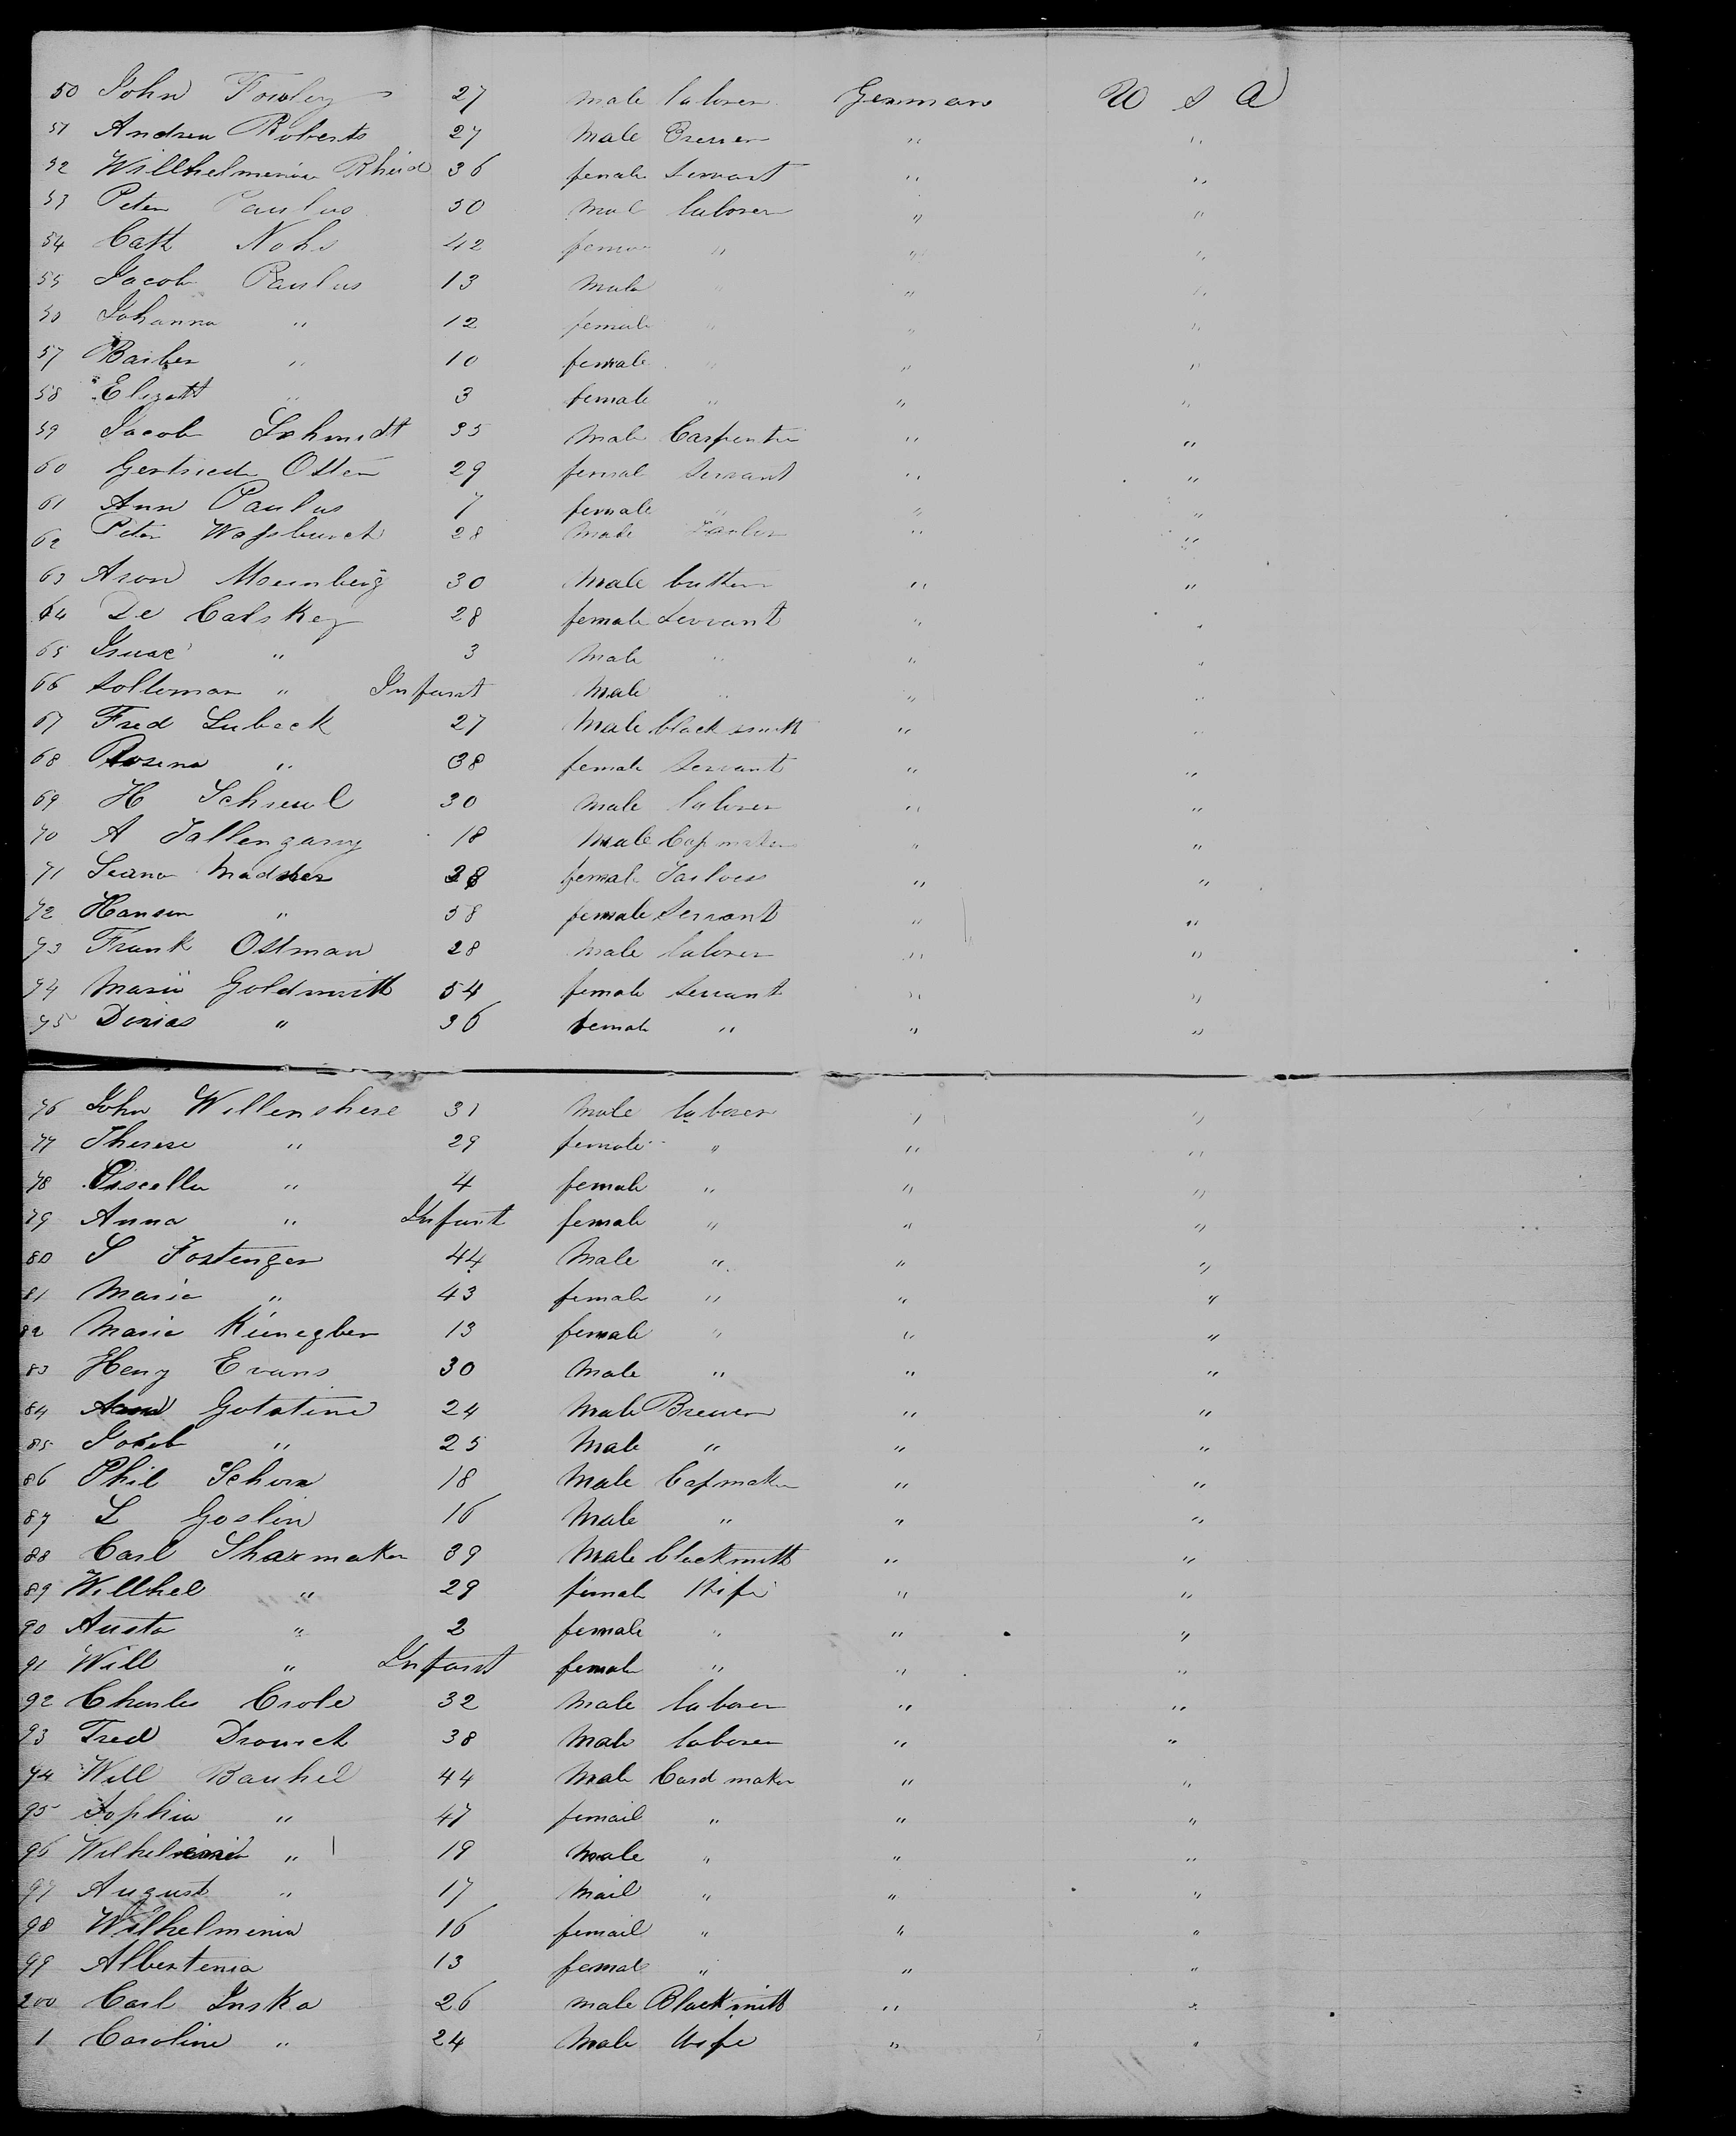 50 John Fowley 27 male laborer German U S A
51 Andrew Roberts 27 male Brewer " "
52 Willhelmenia Rheid 36 female Servant " "
53 Peter Paulus 30 mal laborer " "
54 Cath Nohs 42 femal " " "
55 Jacob Paulus 13 male " " "
56 Johanna " 12 female " " "
57 Barber " 10 female " " "
58 Elizatt " 3 female " " "
59 Jacob Schmidt 35 male Carpenter " "
60 Gertried Otten 29 femal servant " "
61 Ann Paulus 7 female " " "
62 Peter 28 male Tailor " "
63 Aron 30 male " "
64 De Calskey 28 female servant " "
65 Isaac " 3 male " " "
66 Solloman " Infant male " " "
67 Fred Lubeck 27 male black smith " "
68 Rosena " 38 female servant " "
69 H 30 male laborer " "
70 A 18 male Cap maker " "
71 28 female " "
72 Hansen " 58 female servant " "
73 Frank Ostman 28 male laborer " "
74 Marie Goldsmith 54 female servant " "
75 Dorias " 36 female " " "
76 John Willenshese 31 male laborer " "
77 Therese " 29 female " " "
78 " 4 female " " "
79 Anna " Infant female " " "
80 S Fostenger 44 male " " "
81 Marie " 43 female " " "
82 Marie 13 female " " "
83 Heny Evans 30 male " " "
84 Gotstine 24 male Brewer " "
85 " 25 male " " "
86 Phil Schorn 18 male Capmaker " "
87 L Goslin 16 male " " "
88 Carl Shaxmaker 39 male blacksmith " "
89 Willhel " 29 female Wife " "
90 Austa " 2 female " " "
91 Will " Infant female " " "
92 Charles Crole 32 male laborer " "
93 Fred 38 male laborer " "
94 Will Bauhel 44 male Card maker " "
95 Sophia " 47 femail " " "
96 " 19 male " " "
97 August " 17 mail " " "
98 Wilhelmenia 16 femail " " "
99 Albertenia 13 femal " " "
200 Carl Inska 26 male Blacksmith " "
1 Caroline " 24 male Wife " "